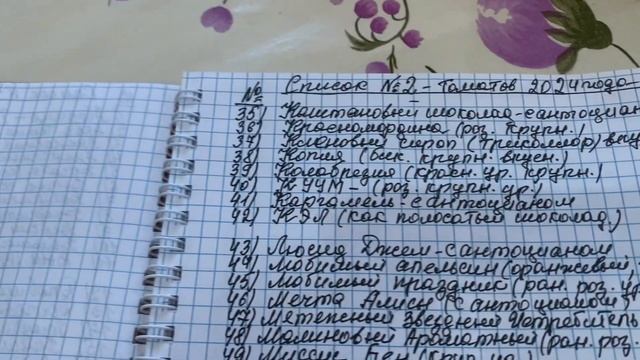 № Список №2 - Томатов 2024 года -
35) Каштановый шоколад - сантоциан
36) Красномордина (роз. крупн.)
37) Кленовый сироп (триколлор) вку
38) Копия (бик. крупн. вкусн.)
39) Калабрезия (красн. ур. крупн.)
40) КУУМ- (роз. крупн. ур.)
41) Карамель сантоцианом
42) КЭЛ (как полосатый шоколад.)
43) Люсид Джем - сантоцианом
44) Любимый апельсин (оранжевый
45) Любимый праздник (ран. роз. ур
46) Мечта Алисы (сантоцианом)
47) Мятежный Звездный Истребитель
48) Малиновый Ароматный (ран. роз.
49) Бен